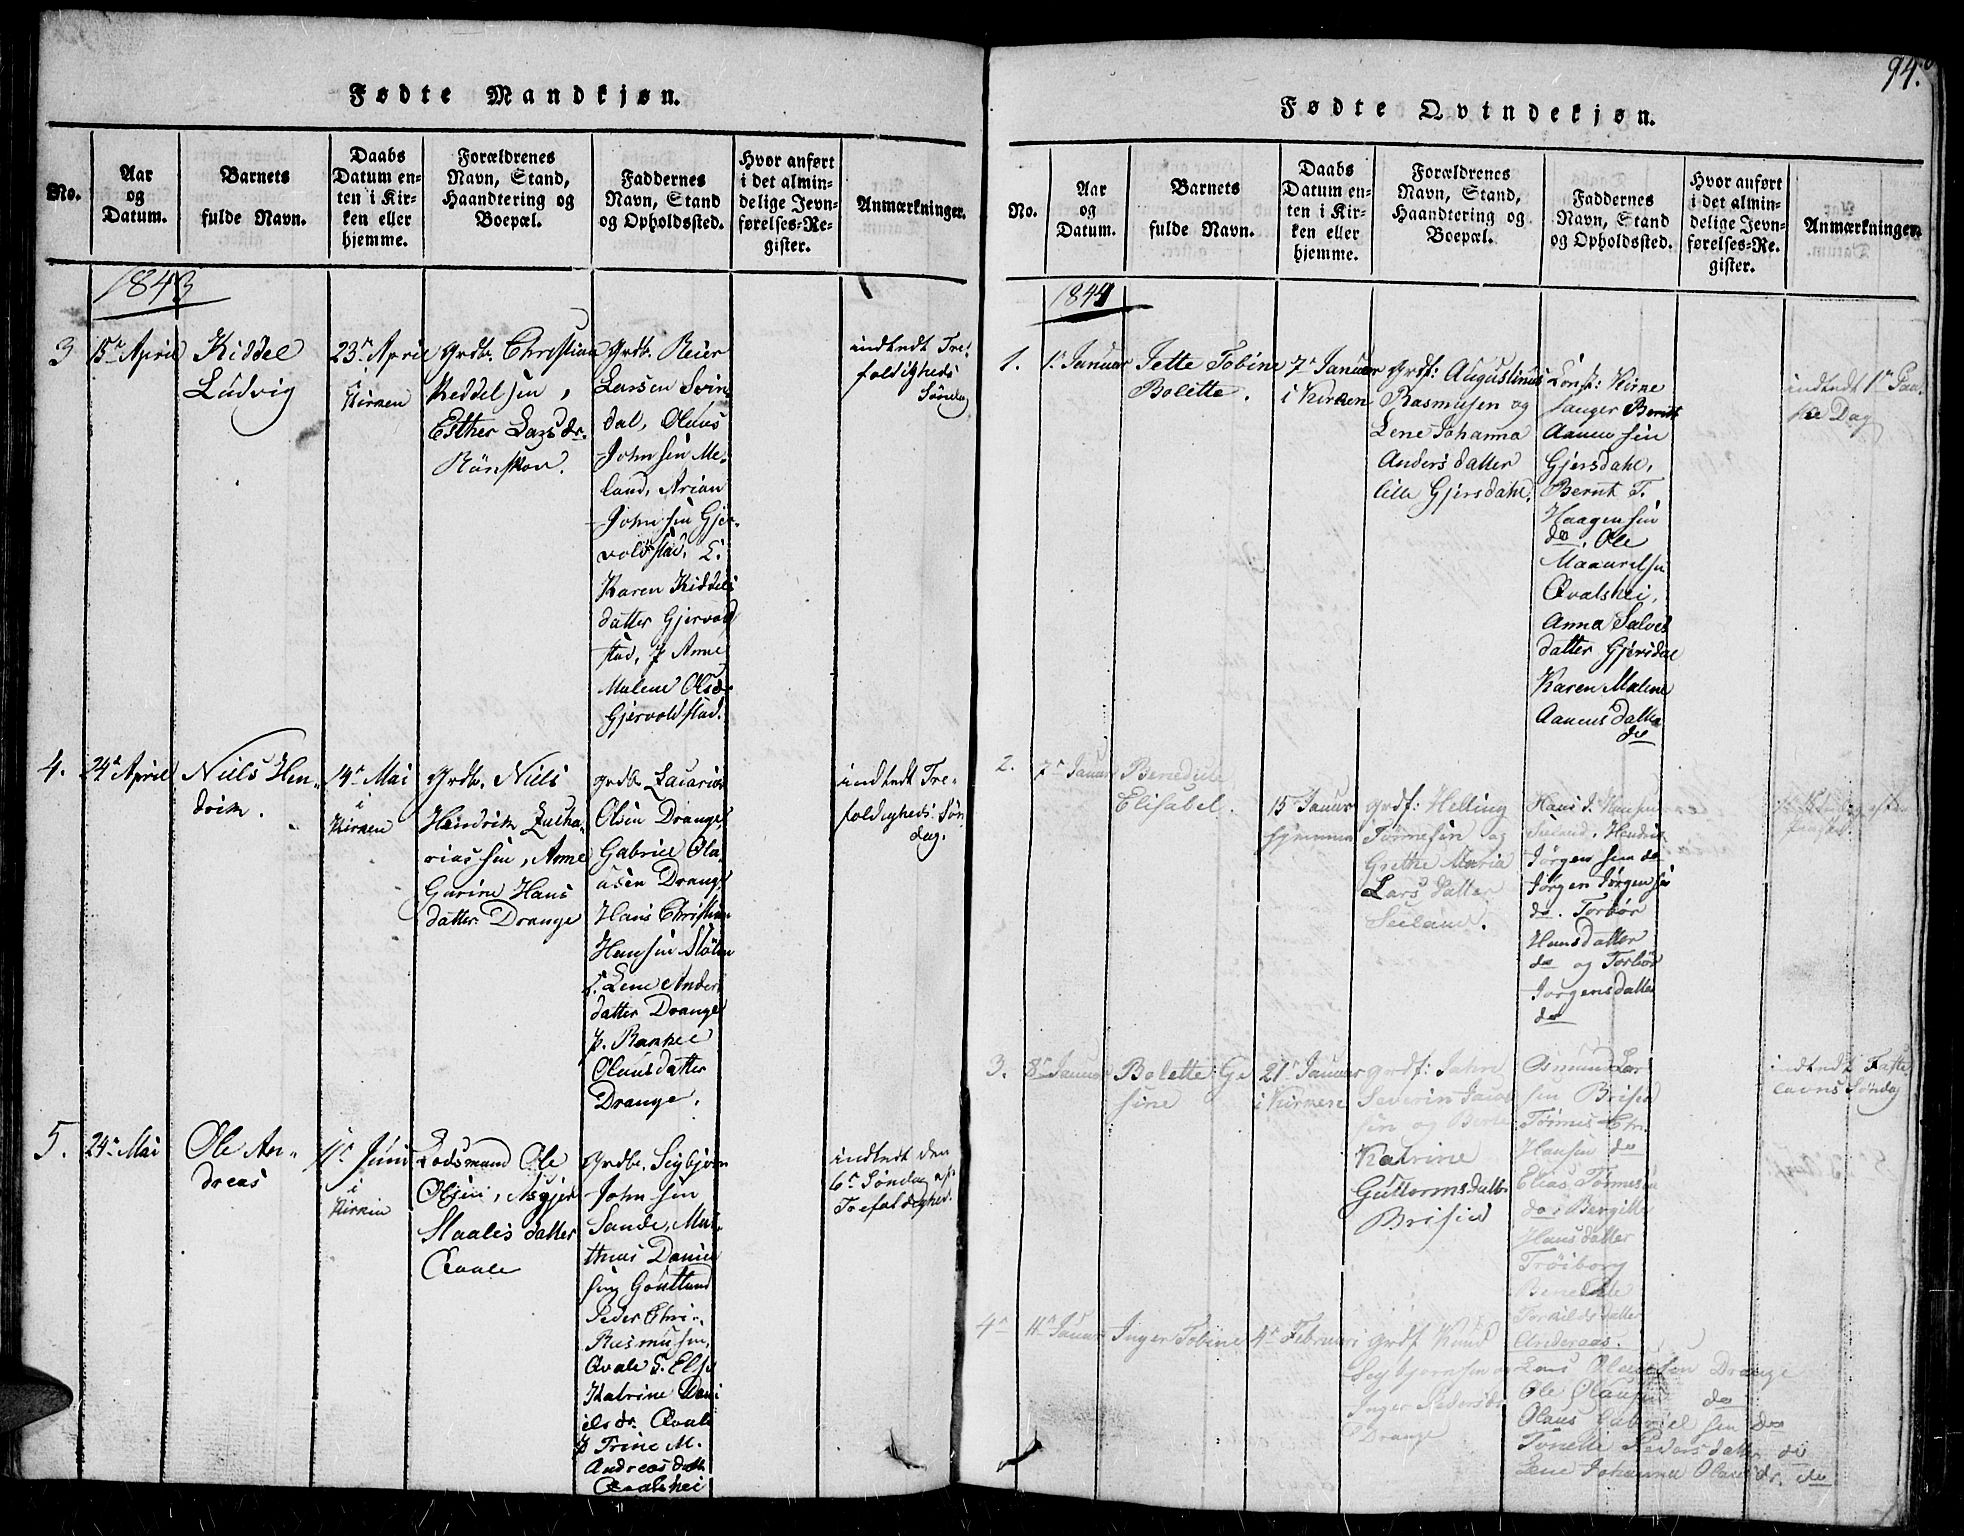 94.
Fødte Mandkjøn.
No.
Aar
og
Datum.
Barnets
fulde Navn.
Daabs
Datum en-
ten i Kir-
ken eller
hjemme.
Forældrenes
Navn, Stand,
Haandtering og
Boepæl.
Faddernes
Navn, Stand
og Opholdssted.
Hvor anført
i det almin-
delige Jevn-
førelses-Re-
gister.
Anmærkninger.
1843
3
15n April
Kiddel
Ludvig
23n April
i
Kirken
Grdb. Christian
Keddelsen,
Esther Larsdr.
Rönskov.
Grdb. Reier
Larsen Svin
dal, Olaus
Johnsen Me-
land, Arian
Johnsen Gjer-
voldstad,
Karen Kiddels
datter Gjervold
stad, P Anne
Malene Olsdr
Gjervoldstad.
indledt Tre-
foldigheds
Søndag
4.
24n April
Niels Hen-
drik.
14n Mai
i
Kirken
Grdb. Niels
Hendrik Zacha-
riassen, Anne
Gurine Hans
datter Drange
Grdb Zacarias
Olsen Drange,
Gabriel Ola
usen Drange,
Hans Christian
Hansen
Lene Anders
datter Drange
p. Rankel
Olausdatter
Drange.
indledt Tre-
foldigheds Søn
dag.
5.
24n Mai
Ole An-
dreas
11n Juni
i
Kirken
Lodsmand Ole
Olsen, Asgjer
Staalesdatter
Qvale
Grdb. Seybjorn
Johnsen
Sande, Mat
thias Daniel
sen
Peder Chr.
Rasmusen,
Qvale Else
Katrine Dani
elsdr. Qvale
p Trine M.
Andreasdatt
Qvalshei
indledt den
6n Søndag ef
Trefoldighed.
Fødte Qvindekjøn.
No.
Aar
og
Datum.
Barnets
fulde Navn.
Daabs
Datum en-
ten i Kir-
ken eller
hjemme.
Forældrenes
Navn, Stand,
Haandtering og
Boepæl.
Faddernes
Navn, Stand
og Opholdssted.
Hvor anført
i det almin-
delige Jevn-
førelses-Re-
gister.
Anmærkninger.
1844
1.
1n Januar
Jette Tobine
Bolette.
7n Januar
i Kirken
Grdf: Augustinus
Rasmusen og
Lene Johanna
Andersdatter
lille Gjersdahl.
Konst: Kirke
sanger Bernt
Aanensen
Gjersdahl,
Bernt T.
Haagensen
do, Ole
Qvalshei,
Anna Salves
datter Gjersdal
Karen Malene
Aanensdatter
do
indledt 1n Paa
ske Dag
2.
7n Januar
Benedicte
Elisabet.
15n Januar
hjemme
Grdf: Helling
Tørresen og
Grethe Maria
Larsdatter
Seeland.
Hans J. Hansen
Seeland, Hendrik
Jörgensen do
Jörgen Jörgensen
do. Torbör
Hansdatter
do og Torbör
Jorgensdatter
do
3.
8n Januar
Bolette Ge
sine
21n Januar
i Kirken
Grdf: Jahn
Severin Jacob
sen og Berte
Katrine
Guttormsdattr
Briseid
Osmund Lar
sen Briseid
Tönnes Chr.
Hansen do
Elias Tönnesen
do, Bergitte
Hansdatter
Tröiborg
Benedicte
Torkildsdatter
Anderaas.
indledt Faste
lavns Søndag
4n
11n Januar
Inger Tobine
4n Februari
Grdf Knud
Seybjornsen og
Inger Pedersdr
Drange
Lars Olaussen Drange
Ole Olausen do
Olaus Gabrielsen do
Tönette Pedersdatter do
Lene Johanne Olausdr. do